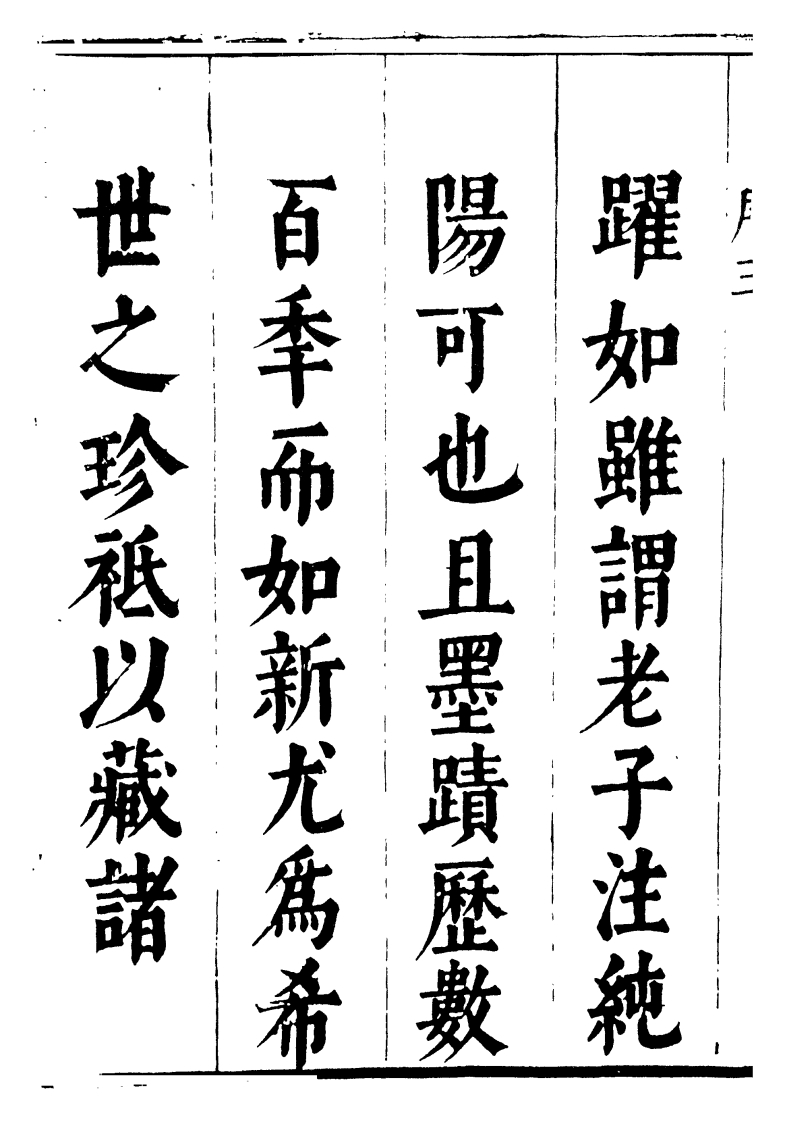 躍如雖謂老子注純
陽可也且墨蹟歷數
百秊而如新尤爲希
世之珍祗以藏諸